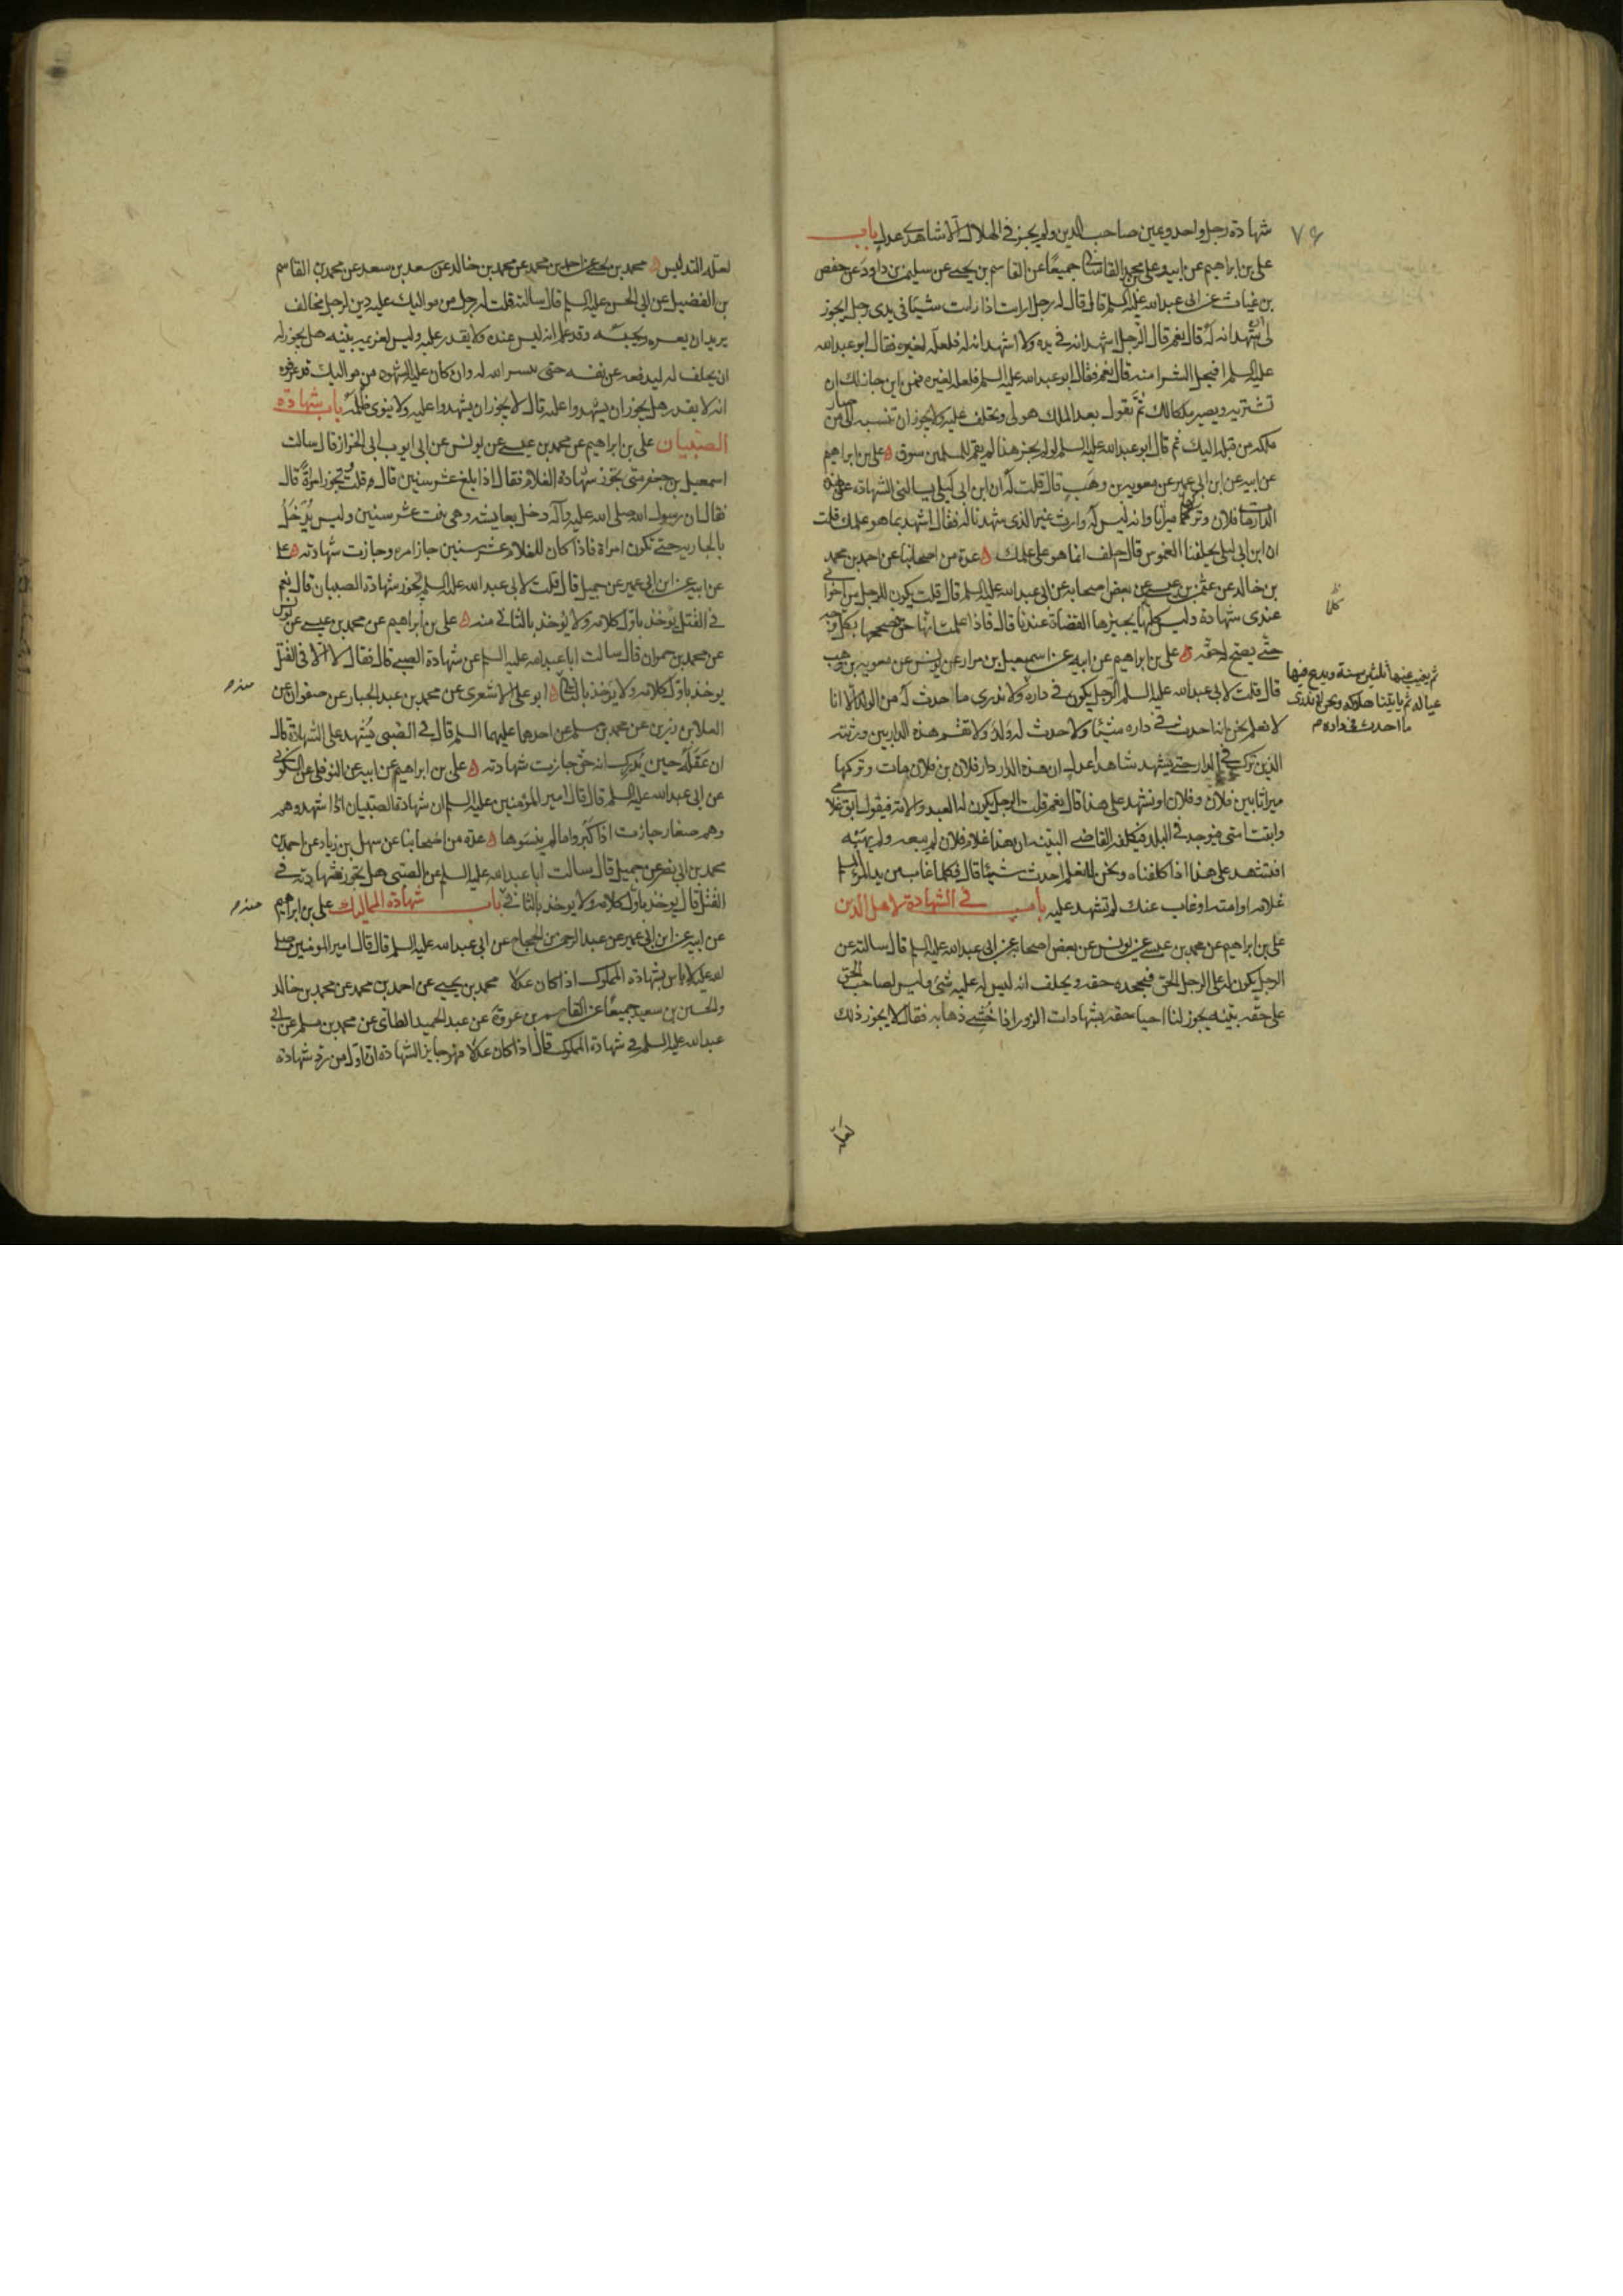 ۷۶
شهادة رجل واحد ويمين صاحب الدين ولم يجز في الهلال الا شاهدي عدل باب
على بن ابراهيم عن ابيه وعلى بن محمد القاساني جميعًا عن القاسم بن يحيى عن سليمن بن داود عن حفص
بن غياث عن ابى عبد الله عليه السلم قال قال له رجل ارايت اذا رايت شيئا في يدى رجل ايجوز
لى ان اشهد انه له قال نعم قال الرجل اشهد انه في يده ولا اشهد انه له فلعله لغيره فقال ابو عبد الله
عليه السلم افيحل الشرا منه قال نعم فقال ابو عبد الله عليه السلم فلعله لغيره فمن اين جاز لك ان
تشتريه ويصير ملكا لك ثم تقول بعد الملك هو لى وتحلف عليه ولا يجوز ان تنسبه الى من صار
ملكه من قبله اليك ثم قال ابو عبد الله عليه السلم لو لم يجز هذا لم يقم للمسلمين سوق ه على بن ابراهيم
عن ابيه عن ابن ابى عمير عن معوية بن وهب قال قلت له ان ابن ابى ليلى يسالنى الشهادة على هذه
الدار مات فلان وتركها ميراثا وانه ليس له وارث غير الذى شهدنا له فقال اشهد بما هو علمك قلت
ان ابن ابى ليلى يحلفنا الغموس قال احلف انما هو على علمك ه عدة من اصحابنا عن احمد بن محمد
بن خالد عن عثمن بن عيسى عن بعض اصحابه عن ابى عبد الله عليه السلم قال قلت يكون للرجل من اخوانى
عندى شهادة وليس كلها يجيزها القضاة عندنا قال فاذا علمت انها حق فصححها بكل وجه
حتى يصح له حقه ه على بن ابراهيم عن ابيه عن اسمعيل بن مرار عن يونس عن معوية بن وهب
قال قلت لابى عبد الله عليه السلم الرجل يكون في داره ولا ندرى ما احدث له من الولد الا انا
لا نعلم نحن انه احدث في داره شيئا ولا حدث له ولد ولا تقسم هذه الدار بين ورثته
الذين ترك في الدار حتى يشهد شاهدا عدل ان هذه الدار دار فلان بن فلان مات وتركها
ميراثا بين فلان وفلان اونشهد على هذا قال نعم قلت الرجل يكون له العبد والامة فيقول ابق غلامى
وابقت امتى فيوجد في البلد فيكلفه القاضى البينة ان هذا غلام فلان لم يبعه ولم يهبه
افنشهد على هذا اذا كلفناه ونحن لم نعلم احدث شيئا قال فكلما غاب من يد المرء المسلم
غلامه او امته او غاب عنك لم تشهد عليه باب في الشهادة لاهل الدين
على بن ابراهيم عن محمد بن عيسى عن يونس عن بعض اصحابه عن ابى عبد الله عليه السلم قال سالته عن
الرجل يكون له على الرجل الحق فيجحده حقه ويحلف انه ليس له عليه شئ وليس لصاحب الحق
على حقه بينه يجوز لنا احيا حقه بشهادات الزور اذا خشى ذهابه فقال لا يجوز ذلك
كلها
ثم يغيب عنها ثلثين سنة ويدع فيها
عياله ثم ياتينا هلاكه ونحن لا ندرى
ما احدث في داره م
لعلة
لعلة التدليس ه محمد بن يحيى عن احمد بن محمد عن محمد بن خالد عن سعد بن سعد عن محمد بن القاسم
بن الفضيل عن ابى الحسن عليه السلم قال سالته قلت له رجل من مواليك عليه دين لرجل مخالف
يريد ان يعسره ويحبسه وقد علم انه ليس عنده ولا يقدر عليه وليس لغريمه بينه هل يجوز له
ان يحلف له ليدفعه عن نفسه حتى ييسر الله له وان كان عليه الشهود من مواليك قد عرفوه
انه لا يقدر هل يجوز ان يشهدوا عليه قال لا يجوز ان يشهدوا عليه ولا ينوى ظلمه باب شهادة
الصبيان على بن ابراهيم عن محمد بن عيسى عن يونس عن ابى ايوب الخزاز قال سالت
اسمعيل بن جعفر متى تجوز شهادة الغلام فقال اذا بلغ عشر سنين قال قلت ويجوز امره قال
فقال ان رسول الله صلى الله عليه وآله دخل بعايشه وهى بنت عشر سنين وليس يُدخَل
بالجارية حتى تكون امراة فاذا كان للغلام عشر سنين جاز امره وجازت شهادته ه على
عن ابيه عن ابن ابى عمير عن جميل قال قلت لابى عبد الله عليه السلم تجوز شهادة الصبيان قال نعم
في القتل يؤخذ باول كلامه ولا يؤخذ بالثانى منه ه على بن ابراهيم عن محمد بن عيسى عن يونس
عن محمد بن حمران قال سالت ابا عبد الله عليه السلم عن شهادة الصبى قال فقال لا الا فى القتل
يوخذ باول كلامه ولا يؤخذ بالثانى ه ابو على الاشعرى عن محمد بن عبد الجبار عن صفوان عن
العلا بن رزين عن محمد بن مسلم عن احدهما عليهما السلم قال في الصبى يُشهد على الشهادة قال
ان عقله حين يدرك انه حق جازت شهادته ه على بن ابراهيم عن ابيه عن النوفلى عن السكونى
عن ابى عبد الله عليه السلم قال قال امير المؤمنين عليه السلم ان شهادة الصبيان اذا اشهدوهم
وهم صغار جازت اذا كبروا ما لم ينسوها ه عدة من اصحابنا عن سهل بن زياد عن احمد بن
محمد بن ابى نصر عن جميل قال سالت ابا عبد الله عليه السلم عن الصبى هل يجوز شهادته في
القتل قال يوخذ باول كلامه ولا يوخذ بالثانى باب شهادة المماليك على بن ابراهيم
عن ابيه عن ابن ابى عمير عن عبد الرحمن بن الحجاج عن ابى عبد الله عليه السلم قال قال امير المومنين صلى
الله عليه لا باس بشهادة المملوك اذا كان عدلا محمد بن يحيى عن احمد بن محمد عن محمد بن خالد
والحسين بن سعيد جميعًا عن القاسم بن عروة عن عبد الحميد الطائى عن محمد بن مسلم عن ابى
عبد الله عليه السلم في شهادة المملوك قال اذا كان عدلا فهو جايز الشهادة ان اول من رد شهادة
منه م
منه م